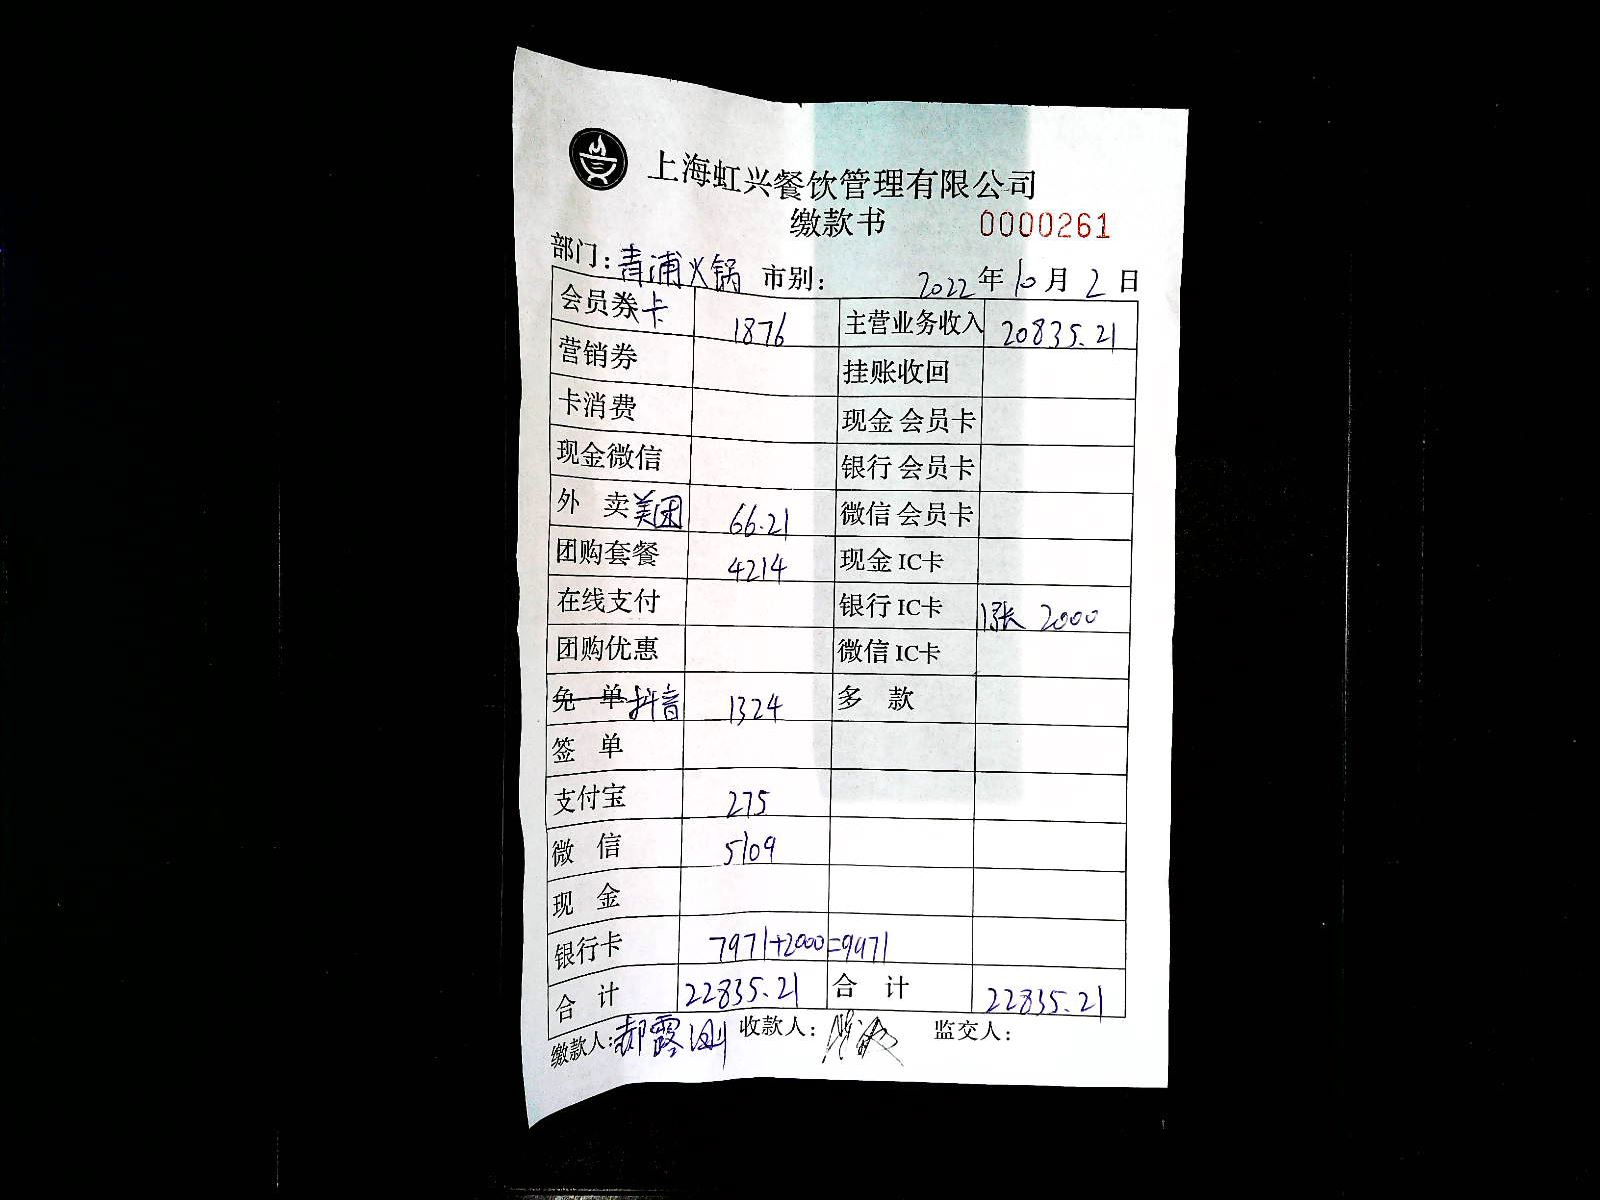 上海虹兴餐饮管理有限公司
缴款书 0000261
部门：青浦火锅 市别： 2022 年 10 月 2 日
会员券卡 1876 主营业务收入 20835.21
营销券 挂账收回
卡消费 现金 会员卡
现金微信 银行 会员卡
外 卖美团 66.21 微信 会员卡
团购套餐 4214 现金 IC卡
在线支付 银行 IC卡 1张 2000
团购优惠 微信 IC卡
免 单抖音 1324 多 款
签 单
支付宝 275
微 信 5109
现 金
银行卡 7971+2000=9971
合 计 22835.21 合 计 22835.21
缴款人：郝露 收款人： 监交人：